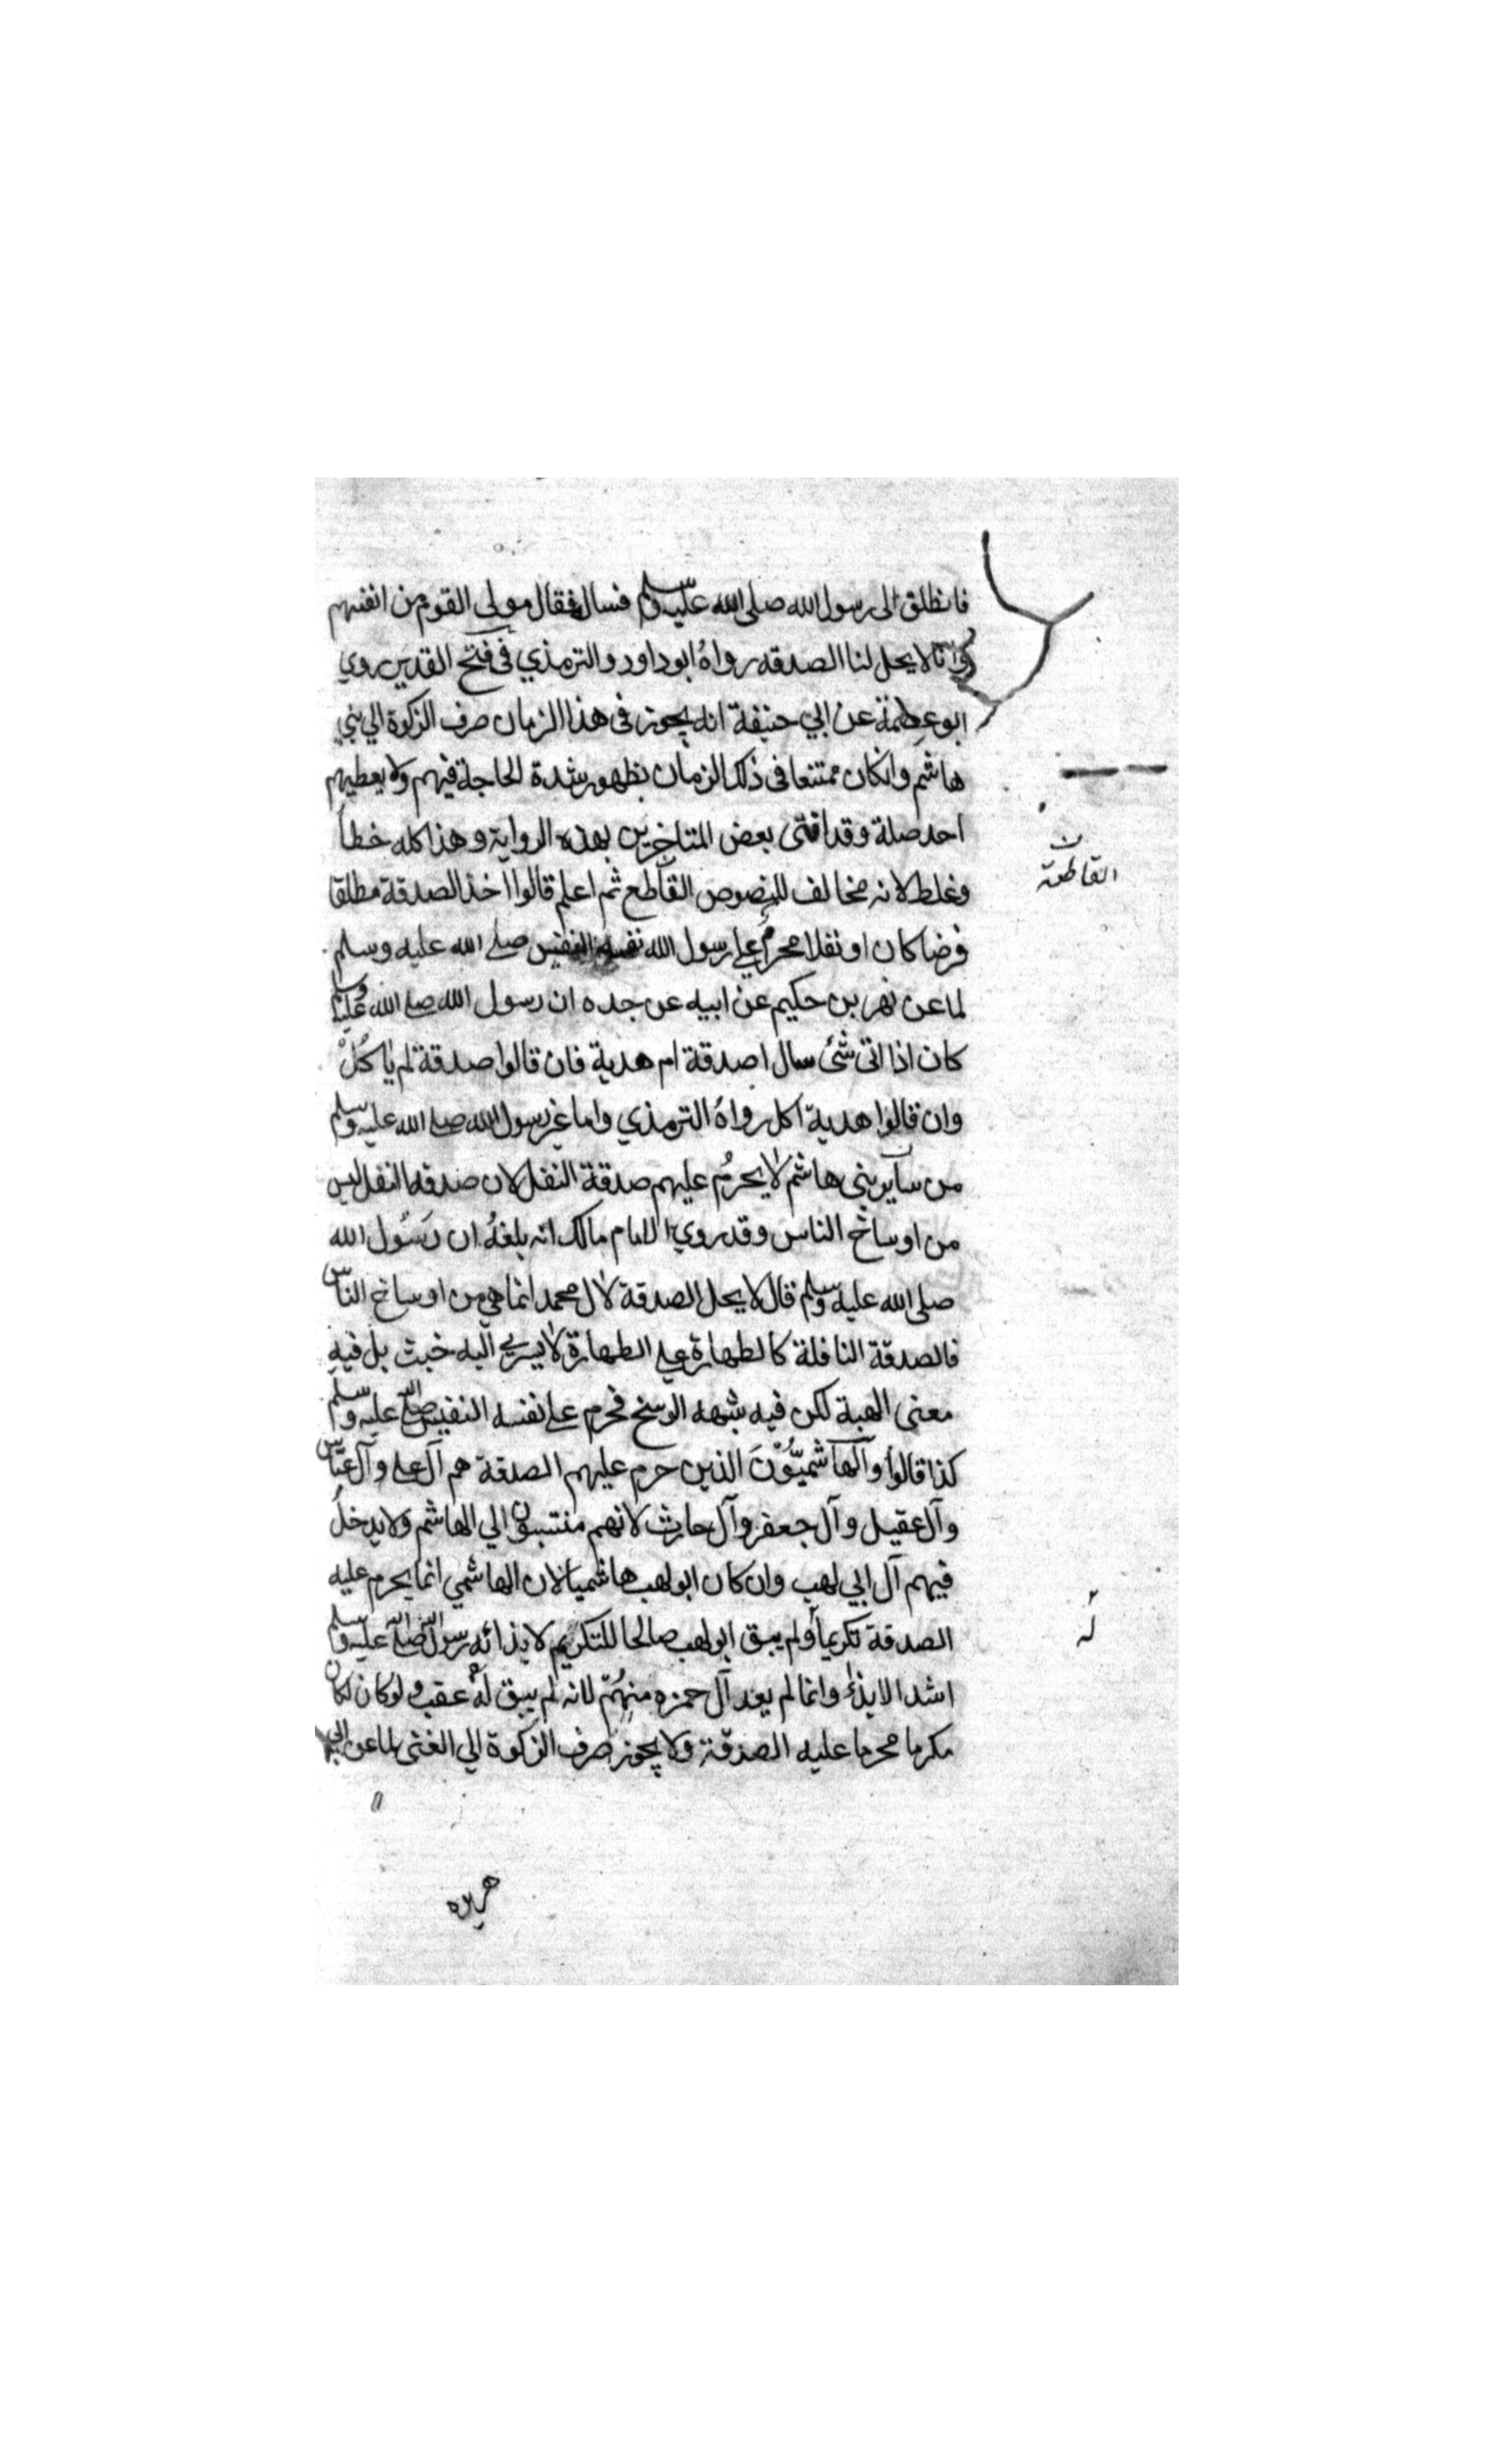 فانطلق الى رسول الله صلى الله عليه وسلم فساله فقال مولى القوم من انفسهم
وانا لا يحل لنا الصدقه رواه ابو داود والترمذي فى فتح القدير روي
ابو عصمة عن ابي حنيفة انه يجوز فى هذا الزمان صرف الزكوة الي بني
هاشم وانكان ممتنعا فى ذلك الزمان بظهور شدة الحاجة فيهم ولا يعطيهم
احد صلة وقد افتى بعض المتاخرين بهذه الرواية وهذا كله خطأ
وغلط لانه مخالف للنصوص القاطع ثم اعلم قالوا اخذ الصدقة مطلقا
القاطعة
فرضا كان او نفلا محرم علي رسول الله نفسه النفيس صلى الله عليه وسلم
لما عن نهر بن حكيم عن ابيه عن جده ان رسول الله صلى الله عليه وسلم
كان اذا اتى شئ سال اصدقة ام هدية فان قالوا صدقة لم ياكل
وان قالوا هدية اكل رواه الترمذي واما غير رسول الله صلى الله عليه وسلم
من سآير بنى هاشم لا يحرم عليهم صدقة النفل لان صدقه النفل ليس
من اوساخ الناس وقد روي الامام مالك انه بلغه ان رسول الله
صلى الله عليه وسلم قال لا يحل الصدقة لال محمد انما هي من اوساخ الناس
فالصدقة النافلة كالطهارة على الطهارة لا يسري اليه خبث بل فيه
معنى الهبة لكن فيه شبهه الوسخ فحرم على نفسه النفيس صلى الله عليه وسلم
كذا قالوا والهاشميون الذين حرم عليهم الصدقة هم آل على وآل عباس
وآل عقيل وآل جعفر وآل حارث لانهم منتسبون الي الهاشم ولا يدخل
فيهم آل ابي لهب وان كان ابو لهب هاشميا لان الهاشمي انما يحرم عليه
الصدقة تكريما ولم يبق ابو لهب صالحا للتكريم لايذائه رسول الله صلى الله عليه وسلم
له
اشد الايذاء وانما لم يعد آل حمزه منهم لانه لم يبق له عقب ولو كان لكان
مكرما محرما عليه الصدقة ولا يجوز صرف الزكوة الي الغنى لما عن ابي
هريره